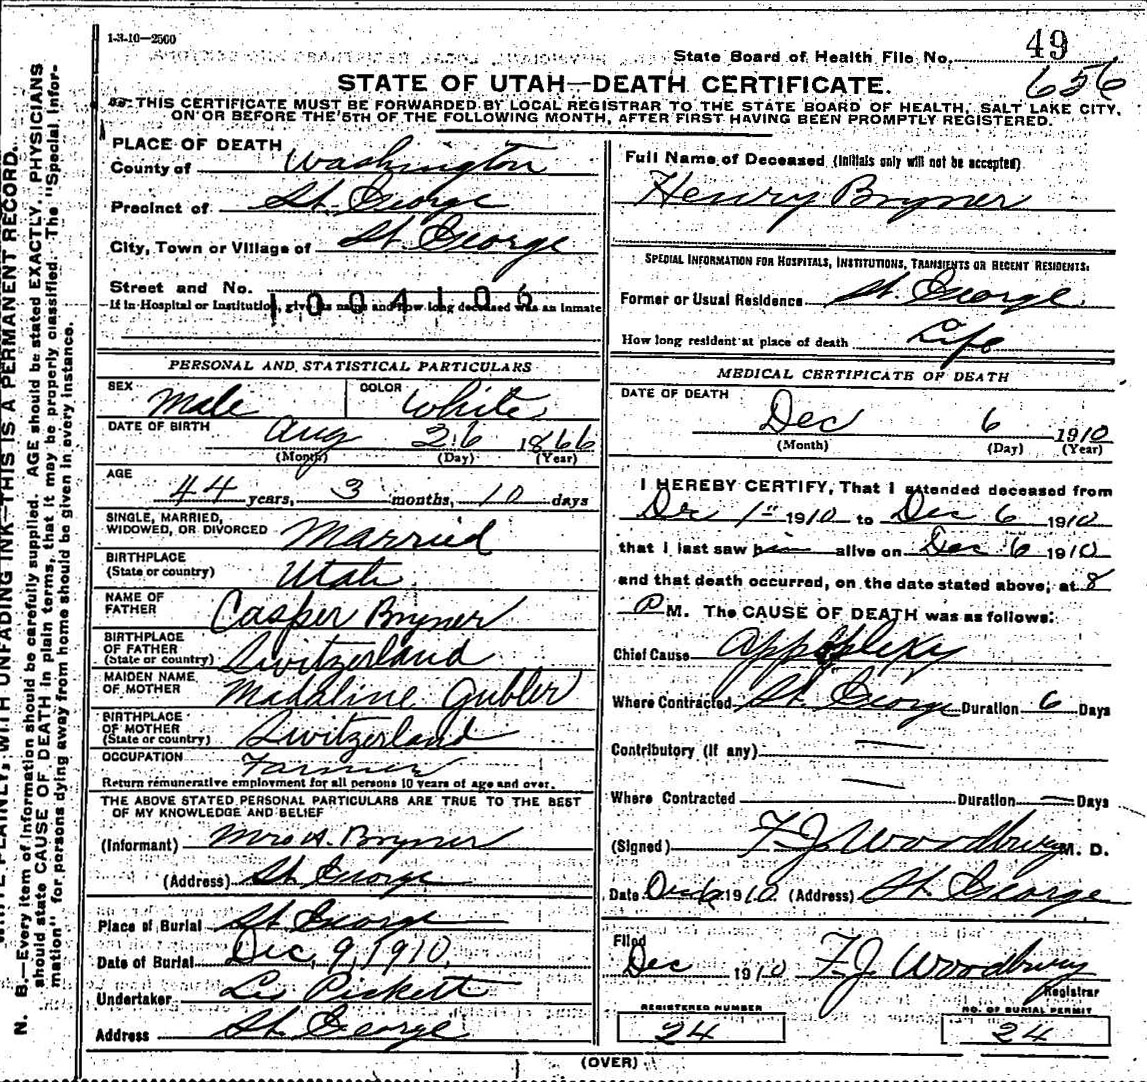 1-3-10—2500
State Board of Health File No. 49
656
STATE OF UTAH—DEATH CERTIFICATE.
THIS CERTIFICATE MUST BE FORWARDED BY LOCAL REGISTRAR TO THE STATE BOARD OF HEALTH, SALT LAKE CITY,
ON OR BEFORE THE 5TH OF THE FOLLOWING MONTH, AFTER FIRST HAVING BEEN PROMPTLY REGISTERED.
PLACE OF DEATH
County of Washington
Precinct of St. George
City, Town or Village of St. George
Street and No.
1004106
—If in Hospital or Institution, give its name and how long deceased was an inmate
PERSONAL AND STATISTICAL PARTICULARS
SEX Male COLOR White
DATE OF BIRTH Aug 26 1866
(Month) (Day) (Year)
AGE 44 years, 3 months, 10 days
SINGLE, MARRIED,
WIDOWED, OR DIVORCED Married
BIRTHPLACE
(State or country) Utah
NAME OF
FATHER Casper Bryner
BIRTHPLACE
OF FATHER
(State or country) Switzerland
MAIDEN NAME
OF MOTHER Madaline Gubler
BIRTHPLACE
OF MOTHER
(State or country) Switzerland
OCCUPATION Farmer
Return remunerative employment for all persons 10 years of age and over.
THE ABOVE STATED PERSONAL PARTICULARS ARE TRUE TO THE BEST
OF MY KNOWLEDGE AND BELIEF
(Informant) Mrs A. Bryner
(Address) St. George
Place of Burial St George
Date of Burial Dec, 9, 1910
Undertaker Pickett
Address St. George
Full Name of Deceased (Initials only will not be accepted)
Henry Bryner
SPECIAL INFORMATION FOR HOSPITALS, INSTITUTIONS, TRANSIENTS OR RECENT RESIDENTS:
Former or Usual Residence St. George
How long resident at place of death Life
MEDICAL CERTIFICATE OF DEATH
DATE OF DEATH
Dec 6 1910
(Month) (Day) (Year)
I HEREBY CERTIFY, That I attended deceased from
Dec 1st 1910 to Dec 6 1910
that I last saw him alive on Dec 6 1910
and that death occurred, on the date stated above, at 8
P M. The CAUSE OF DEATH was as follows:
Chief Cause Appoplexy
Where Contracted St. George Duration 6 Days
Contributory (if any) —
Where Contracted Duration — Days
(Signed) F. J. Woodbury M. D.
Date Dec 6 1910 (Address) St. George
Filed
Dec 1910 F. J. Woodbury
Registrar
REGISTERED NUMBER
24
NO. OF BURIAL PERMIT
24
(OVER)
PLAINLY, WITH UNFADING INK—THIS IS A PERMANENT RECORD.
N. B.—Every item of information should be carefully supplied. AGE should be stated EXACTLY. PHYSICIANS
should state CAUSE OF DEATH in plain terms, that it may be properly classified. The "Special Infor-
mation" for persons dying away from home should be given in every instance.